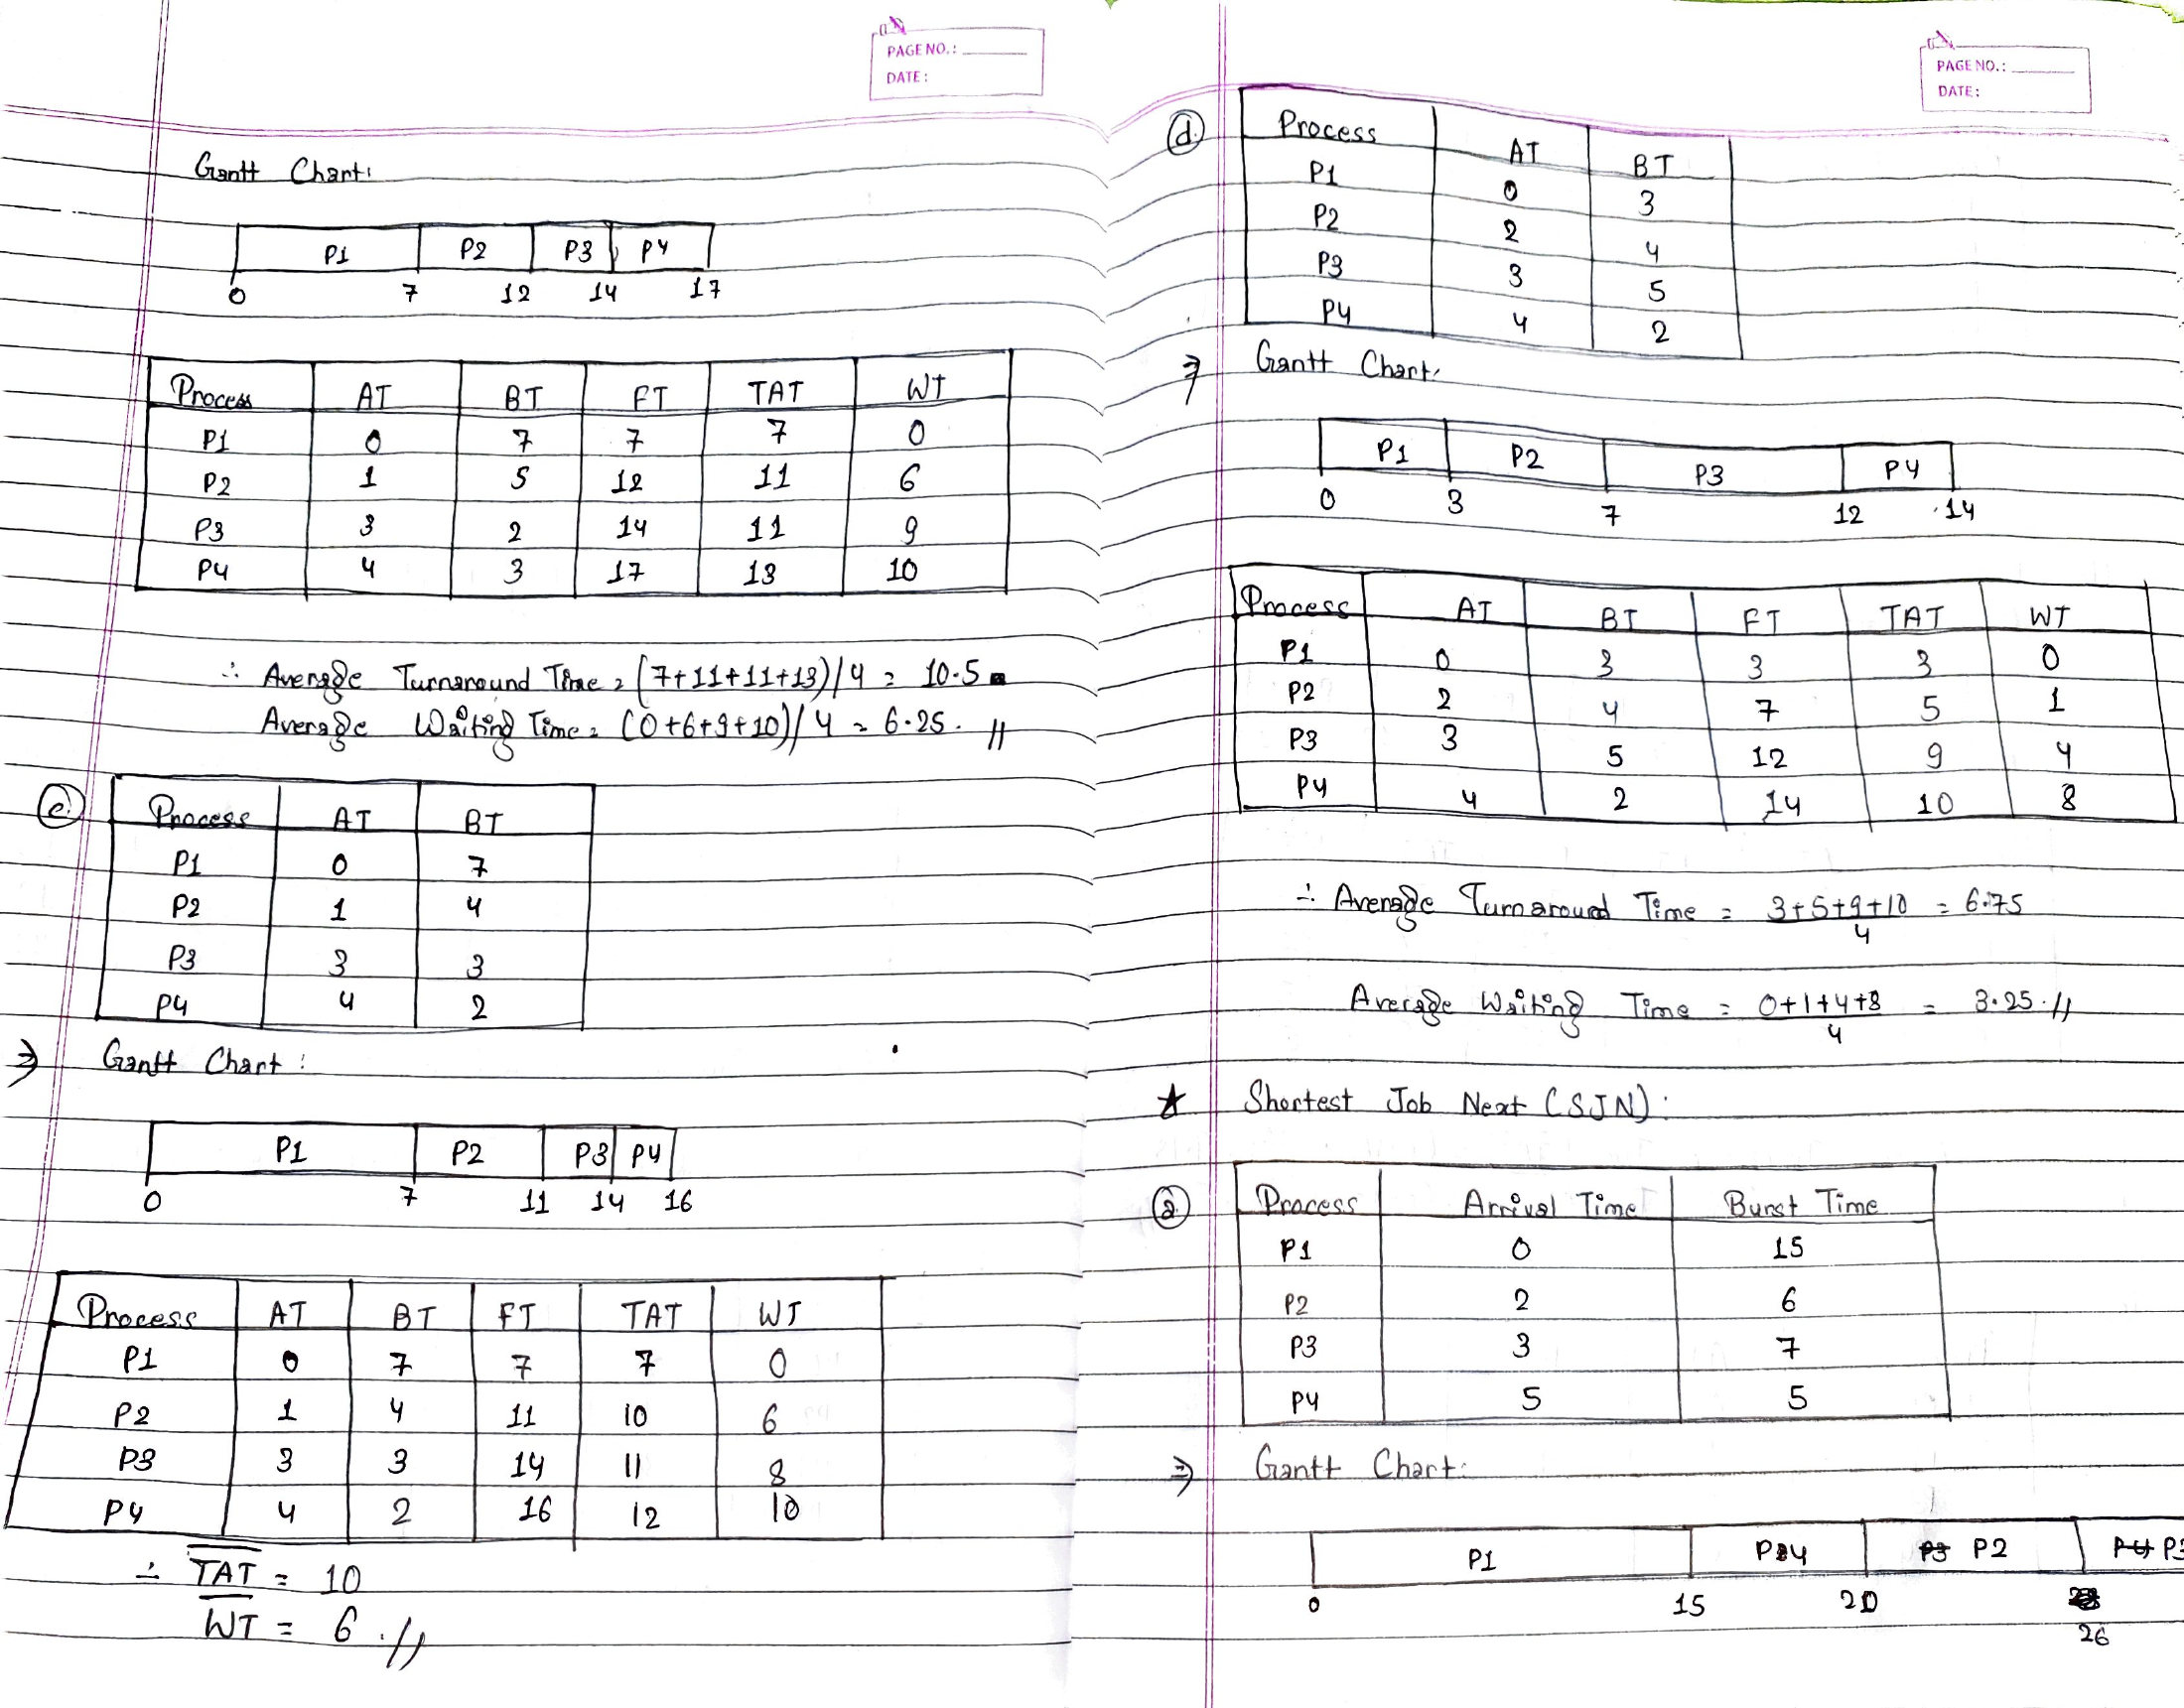 PAGE NO.:
DATE:
Gantt Chart:
P1 P2 P3 P4
0 7 12 14 17
Process AT BT FT TAT WT
P1 0 7 7 7 0
P2 1 5 12 11 6
P3 3 2 14 11 9
P4 4 3 17 13 10
∴ Average Turnaround Time = (7+11+11+13)/4 = 10.5
Average Waiting Time = (0+6+9+10)/4 = 6.25. //
c. Process AT BT
P1 0 7
P2 1 4
P3 3 3
P4 4 2
⇒ Gantt Chart:
P1 P2 P3 P4
0 7 11 14 16
Process AT BT FT TAT WT
P1 0 7 7 7 0
P2 1 4 11 10 6
P3 3 3 14 11 8
P4 4 2 16 12 10
∴ TAT = 10
WT = 6. //
PAGE NO.:
DATE:
d. Process AT BT
P1 0 3
P2 2 4
P3 3 5
P4 4 2
⇒ Gantt Chart:
P1 P2 P3 P4
0 3 7 12 14
Process AT BT FT TAT WT
P1 0 3 3 3 0
P2 2 4 7 5 1
P3 3 5 12 9 4
P4 4 2 14 10 8
∴ Average Turnaround Time = 3+5+9+10 = 6.75
4
Average Waiting Time = 0+1+4+8 = 3.25. //
4
★ Shortest Job Next (SJN):
a. Process Arrival Time Burst Time
P1 0 15
P2 2 6
P3 3 7
P4 5 5
⇒ Gantt Chart:
P1 P4 P3 P2 P4 P3
0 15 20
26